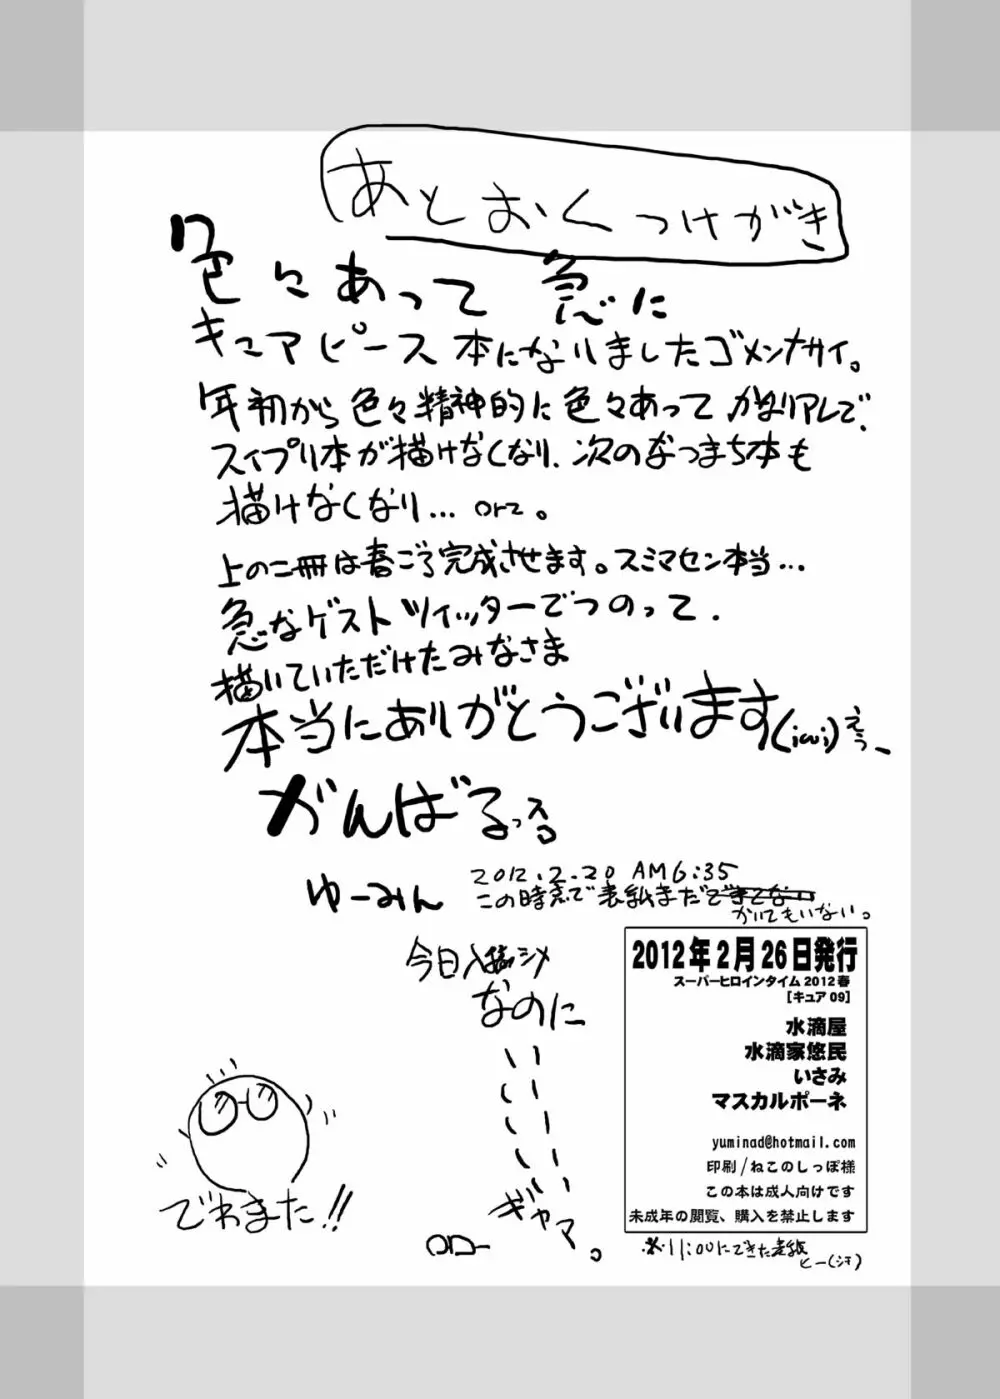 あとおくつけがき
色々あって 急に
キュアピース本になりましたゴメンナサイ。
年初から色々精神的に色々あってかなりアレで、
スイプリ本が描けなくなり、次のなつまち本も
描けなくなり… orz。
上の二冊は春ごろ完成させます。スミマセン本当…
急なゲストツイッターでつのって、
描いていただけたみなさま
本当にありがとうございます(;ω;)えぅ、
がんばるっスる
ゆーみん
2012.2.20 AM6:35
この時点で表紙まだできてない
かいてもいない。
今日入稿シメ
なのに
、、、、、
、、、、、
ギャマ。
でわまた!!
2012年2月26日発行
スーパーヒロインタイム2012春
[キュア09]
水滴屋
水滴家悠民
いさみ
マスカルポーネ
yuminad@hotmail.com
印刷/ねこのしっぽ様
この本は成人向けです
未成年の閲覧、購入を禁止します
※11:00にできた表紙